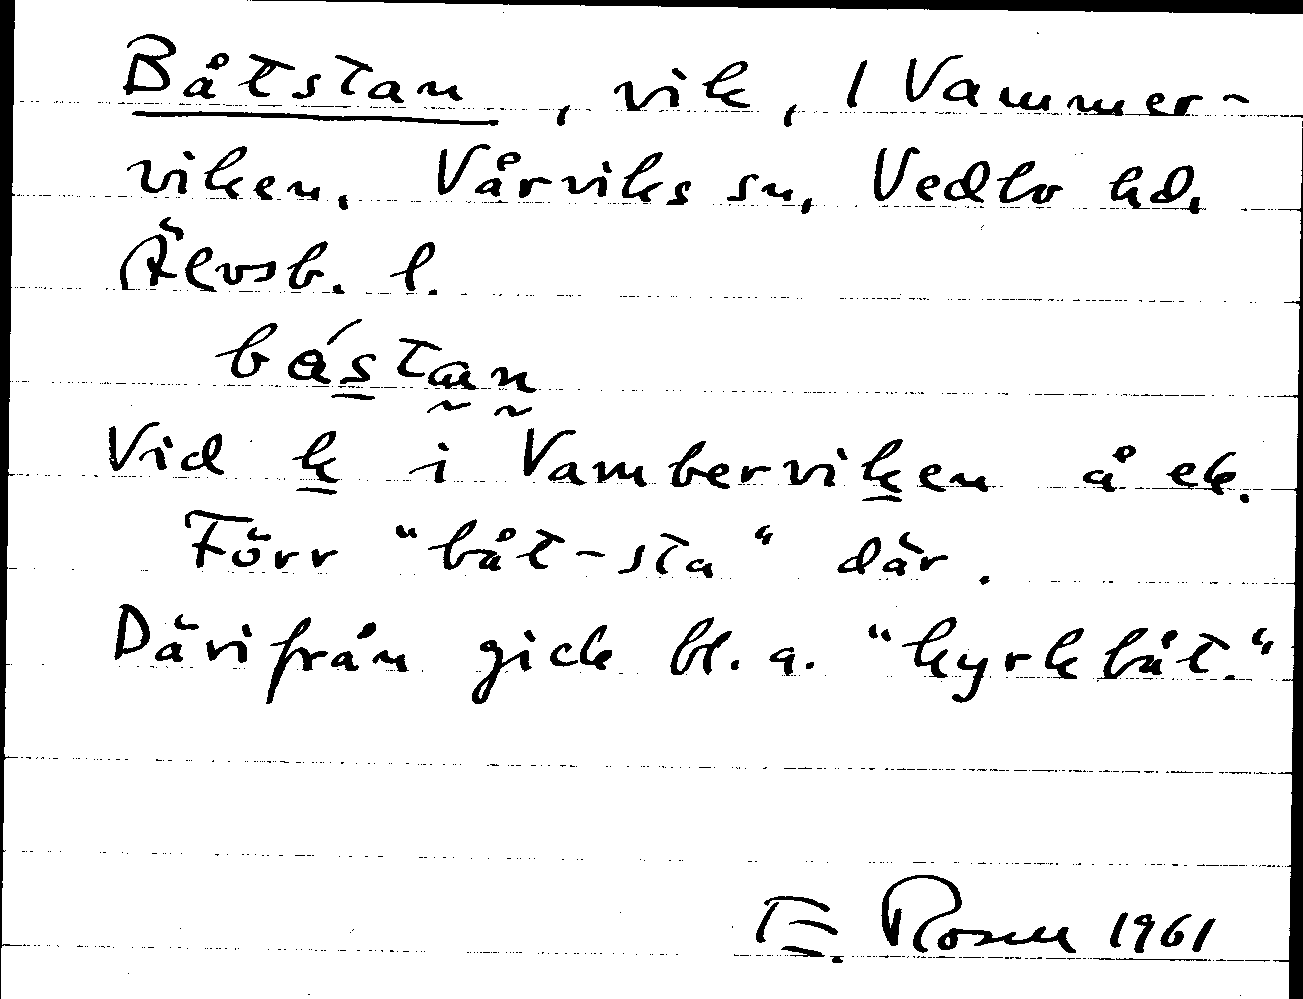 Båtstan, vik, i Vammer-
viken, Vårviks sn, Vedbo hd.
Älvsb. l.
bástan
Vid k i Vamberviken å ek.
Förr "båt-sta" där.
Därifrån gick bl. a. "kyrkbåt."
E. Rosell 1961